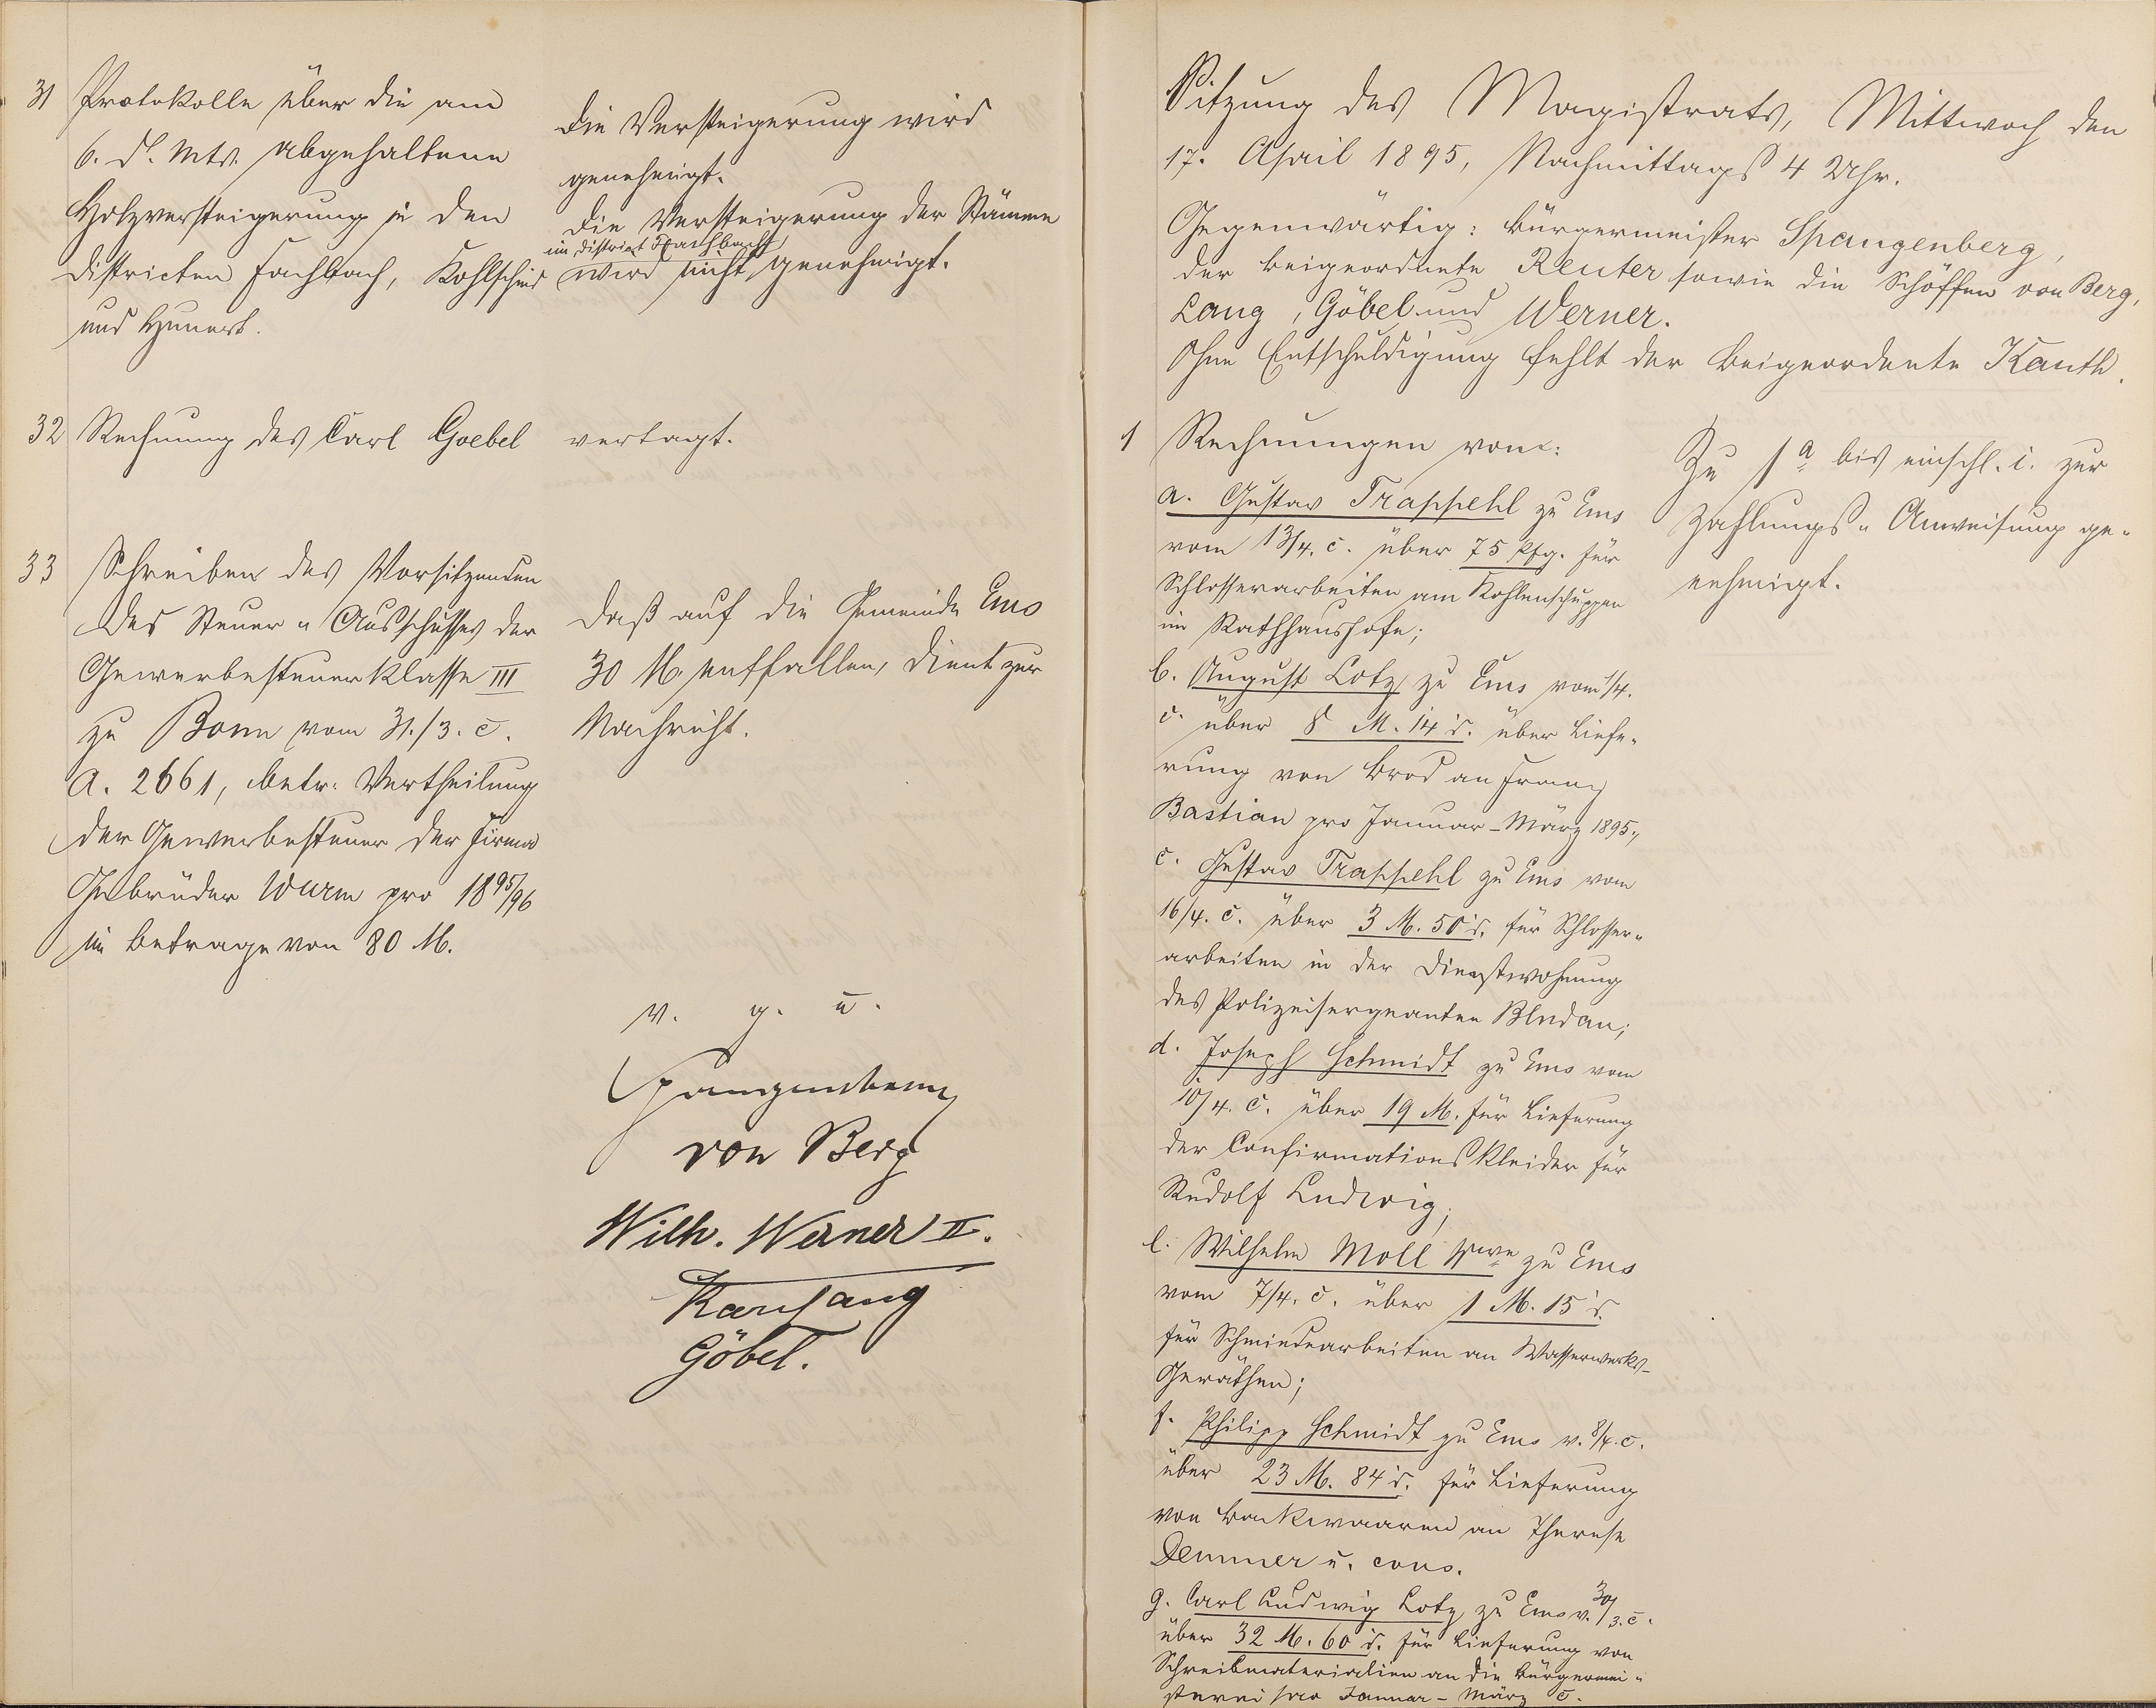 31 Protokolle über die am
6. d. Mts. abgehaltene
Holzversteigerung in den
Districten Fachbach, Kohlscheid
und Hunert.
Die Versteigerung wird
genehmigt.
Die Versteigerung der Stämme
im District Fachbach
wird nicht genehmigt.
32 Rechnung des Carl Goebel
vertagt.
33 Schreiben des Vorsitzenden
des Steuer-Ausschusses der
Gewerbesteuerklasse III
zu Bonn vom 31./3. c.
A. 2661, betr. Vertheilung
der Gewerbesteuer der Firma
Gebrüder Wurm pro 1895/96
im Betrage von 80 M.
Daß auf die Gemeinde Ems
30 M. entfallen, dient zur
Nachricht.
v. g. u.
Spangenberg
von Berg
Wilh. Werner II.
Karl Lang
Göbel.
Sitzung des Magistrats, Mittwoch den
17. April 1895, Nachmittags 4 Uhr.
Gegenwärtig: Bürgermeister Spangenberg,
der Beigeordnete Reuter sowie die Schöffen von Berg,
Lang, Göbel und Werner.
Ohne Entschuldigung fehlt der Beigeordnete Kauth.
1 Rechnungen vom:
a. Gustav Trappehl zu Ems
vom 13/4. c. über 75 Pfg. für
Schlosserarbeiten am Kohlenschuppen
im Rathhaushofe;
b. August Lotz zu Ems vom 1/4.
c. über 8 M. 14 d. über Liefe-
rung von Brod an Franz
Bastian pro Januar-März 1895;
c. Gustav Trappehl zu Ems vom
16/4. c. über 3 M. 50 d. für Schlosser-
arbeiten in der Dienstwohnung
des Polizeisergeanten Bludau;
d. Joseph Schmidt zu Ems vom
10/4. c. über 19 M. für Lieferung
der Confirmationskleider für
Rudolf Ludwig;
e. Wilhelm Moll Wwe zu Ems
vom 7/4. c. über 1 M. 15 d.
für Schmiedearbeiten an Wasserwerks-
Geräthen;
f. Philipp Schmidt zu Ems v. 8/4. c.
über 23 M. 84 d. für Lieferung
von Backwaaren an Therese
Demmer u. cons.
g. Carl Ludwig Lotz zu Ems v. 30/3. c.
über 32 M. 60 d. für Lieferung von
Schreibmaterialien an die Bürgermei-
sterei pro Januar-März c.
Zu 1 a bis einschl. i. zur
Zahlungs-Anweisung ge-
nehmigt.